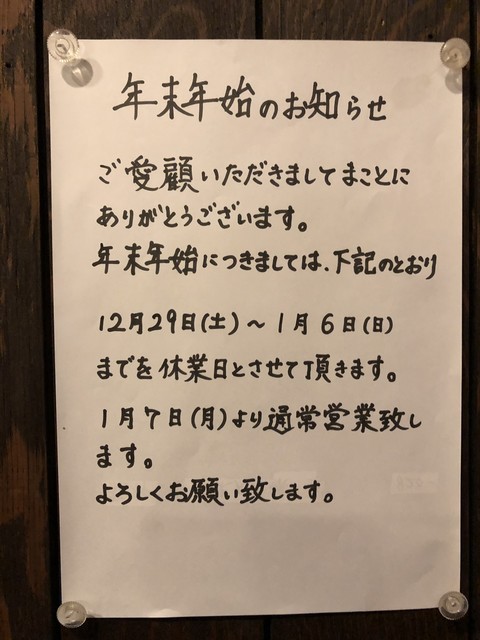 年末年始のお知らせ
ご愛顧いただきましてまことに
ありがとうございます。
年末年始につきましては、下記のとおり
12月29日(土)～1月6日(日)
までを休業日とさせて頂きます。
1月7日(月)より通常営業致し
ます。
よろしくお願い致します。